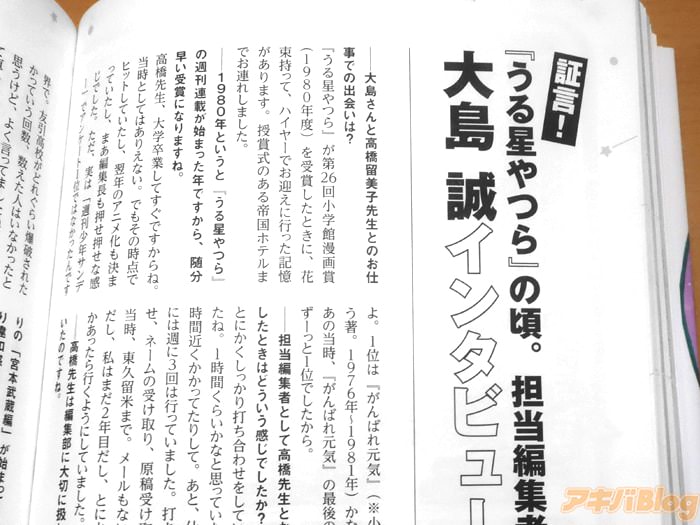 証言！
『うる星やつら』の頃。担当編集者
大島 誠インタビュー
──大島さんと高橋留美子先生とのお仕
事での出会いは？
『うる星やつら』が第26回小学館漫画賞
(1980年度)を受賞したときに、花
束持って、ハイヤーでお迎えに行った記憶
があります。授賞式のある帝国ホテルま
でお連れしました。
──1980年というと『うる星やつら』
の週刊連載が始まった年ですから、随分
早い受賞になりますね。
高橋先生、大学卒業してすぐですからね。
当時としてはありえない。でもその時点で
ヒットしていたし、翌年のアニメ化も決ま
っていたし、まあ編集長も押せ押せな感
じでした。ただ、実は『週刊少年サンデ
ー』でアンケート1位ではなかったんです
よ。1位は『がんばれ元気』(※小
う著。1976年～1981年)かな
あの当時、『がんばれ元気』の最後の
ずーっと1位でしたから。
──担当編集者として高橋先生と
したときはどういう感じでしたか？
とにかくしっかり打ち合わせをして
たね。1時間くらいかなと思ってい
時間近くかかってたりして。あと、仕
には週に3回は行っていました。打
せ、ネームの受け取り、原稿受け取
当時、東久留米まで。メールもな
だし、私はまだ2年目だし、とに
かあったら行くようにしていました。
──高橋先生は編集部に大切に扱
いたのですね。
界で。友引高校がどれぐらい爆破された
かっていう回数、数えた人はいなかったと
思うけど、よく言ってました
りの「宮本武蔵編」が始まっ
アキバBlog